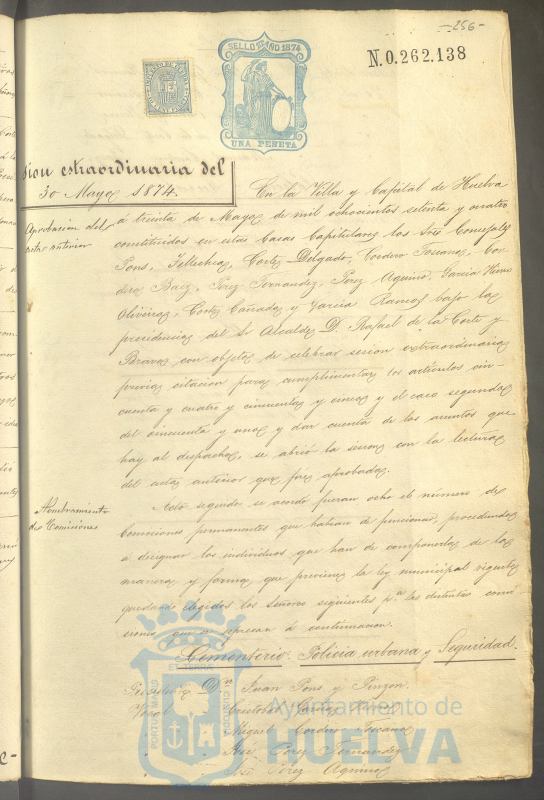 -256-
N.0.262.138
SELLO 9º AÑO 1874
UNA PESETA
sion extraordinaria del
30 Mayo 1874.
En la Villa y Capital de Huelva
Aprobacion del
acta anterior
á treinta de Mayo de mil ochocientos setenta y cuatro
constituidos en estas Casas Capitulares los Sres Concejales
Pons, Tellechea, Cortes Delgado, Cordero Toscano, Cor-
dero Baez, Perez Fernandez, Perez Aquino, Garcia
Oliveira, Cortes Cañada y Garcia Ramos bajo la
presidencia del Sr Alcalde D. Rafael de la Corte y
Bravo con objeto de celebrar sesion extraordinaria
previa citacion para cumplimentar los articulos cin-
cuenta y cuatro y cincuenta y cinco y el caso segundo
del cincuenta y uno y dar cuenta de los asuntos que
hay al despacho, se abrió la sesion con la lectura
del acta anterior que fué aprobada.
Nombramiento
de Comisiones
Acto seguido se acordó fueran ocho el número de
Comisiones permanentes que habian de funcionar, procediendo
á designar los individuos que han de componerlas de la
manera y forma que previene la ley municipal vigente
quedando elegidos los Señores siguientes pª las distintas comi-
siones que se espresan á continuacion.
Cementerio. Policia urbana y Seguridad.
Presidente Dn Juan Pons y Pinzon.
Vocal Cristobal Cortes
Miguel Cordero Toscano
José Perez Fernandez
José Perez Aquino
Ayuntamiento de
HUELVA